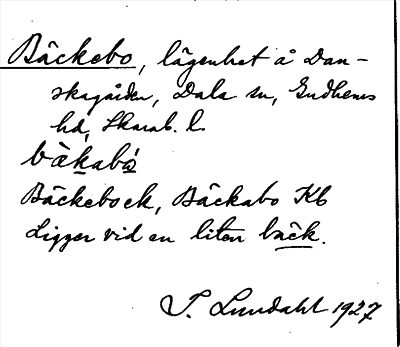 Bäckebo, lägenhet å Dan-
skagården, Dala sn, Gudhems
hd, Skarab. l.
bäkabo
Bäckeboek, Bäckabo Kb
Ligger vid en liten bäck.
S. Lundahl 1927